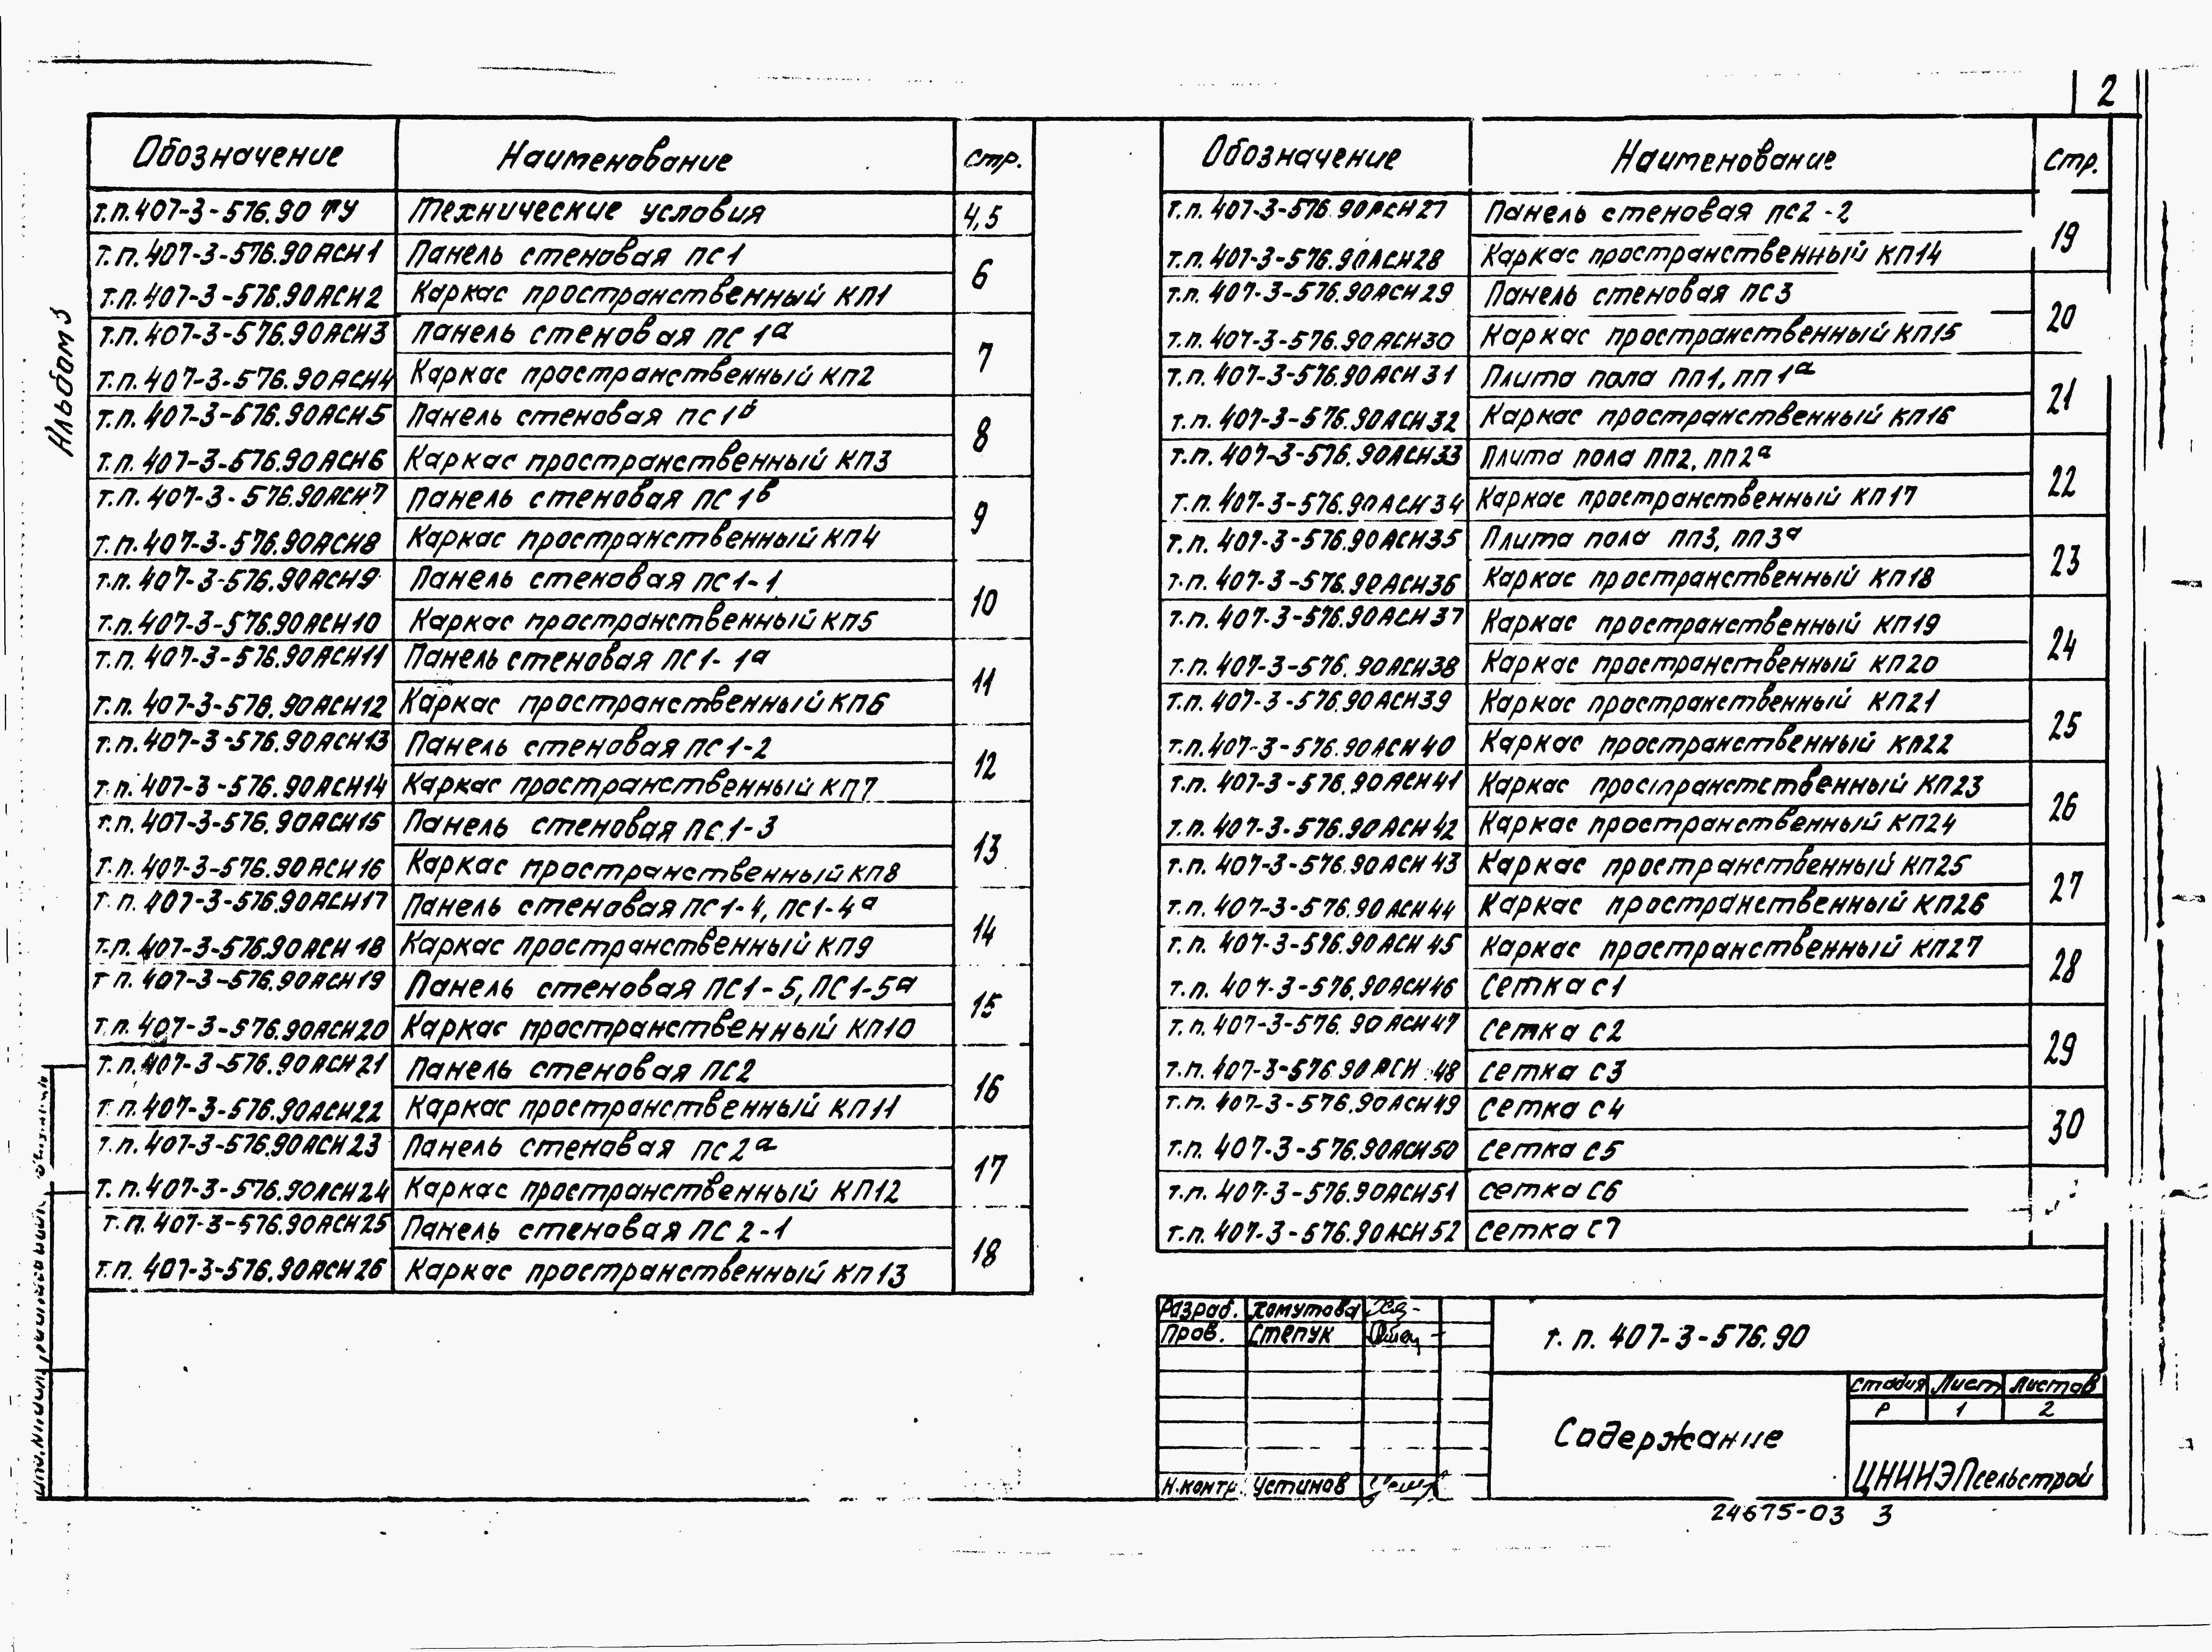 2
Альбом 3
Обозначение Наименование стр.
т.п. 407-3-576.90 ТУ Технические условия 4,5
т.п. 407-3-576.90 АСИ1 Панель стеновая ПС1 6
т.п. 407-3-576.90 АСИ2 Каркас пространственный КП1
т.п. 407-3-576.90 АСИ3 Панель стеновая ПС 1а 7
т.п. 407-3-576.90 АСИ4 Каркас пространственный КП2
т.п. 407-3-576.90 АСИ5 Панель стеновая ПС1б 8
т.п. 407-3-576.90 АСИ6 Каркас пространственный КП3
т.п. 407-3-576.90 АСИ7 Панель стеновая ПС 1в 9
т.п. 407-3-576.90 АСИ8 Каркас пространственный КП4
т.п. 407-3-576.90 АСИ9 Панель стеновая ПС1-1 10
т.п. 407-3-576.90 АСИ10 Каркас пространственный КП5
т.п. 407-3-576.90 АСИ11 Панель стеновая ПС1-1а 11
т.п. 407-3-576.90 АСИ12 Каркас пространственный КП6
т.п. 407-3-576.90 АСИ13 Панель стеновая ПС1-2 12
т.п. 407-3-576.90 АСИ14 Каркас пространственный КП7
т.п. 407-3-576.90 АСИ15 Панель стеновая ПС1-3 13
т.п. 407-3-576.90 АСИ16 Каркас пространственный КП8
т.п. 407-3-576.90 АСИ17 Панель стеновая ПС1-4, ПС1-4а 14
т.п. 407-3-576.90 АСИ18 Каркас пространственный КП9
т.п. 407-3-576.90 АСИ19 Панель стеновая ПС1-5, ПС1-5а 15
т.п. 407-3-576.90 АСИ20 Каркас пространственный КП10
т.п. 407-3-576.90 АСИ21 Панель стеновая ПС2 16
т.п. 407-3-576.90 АСИ22 Каркас пространственный КП11
т.п. 407-3-576.90 АСИ23 Панель стеновая ПС2а 17
т.п. 407-3-576.90 АСИ24 Каркас пространственный КП12
т.п. 407-3-576.90 АСИ25 Панель стеновая ПС 2-1 18
т.п. 407-3-576.90 АСИ26 Каркас пространственный КП13
Обозначение Наименование стр.
т.п. 407-3-576.90 АСИ27 Панель стеновая ПС2-2 19
т.п. 407-3-576.90 АСИ28 Каркас пространственный КП14
т.п. 407-3-576.90 АСИ29 Панель стеновая ПС3 20
т.п. 407-3-576.90 АСИ30 Каркас пространственный КП15
т.п. 407-3-576.90 АСИ31 Плита пола ПП1, ПП1а 21
т.п. 407-3-576.90 АСИ32 Каркас пространственный КП16
т.п. 407-3-576.90 АСИ33 Плита пола ПП2, ПП2а 22
т.п. 407-3-576.90 АСИ34 Каркас пространственный КП17
т.п. 407-3-576.90 АСИ35 Плита пола ПП3, ПП3а 23
т.п. 407-3-576.90 АСИ36 Каркас пространственный КП18
т.п. 407-3-576.90 АСИ37 Каркас пространственный КП19 24
т.п. 407-3-576.90 АСИ38 Каркас пространственный КП20
т.п. 407-3-576.90 АСИ39 Каркас пространственный КП21 25
т.п. 407-3-576.90 АСИ40 Каркас пространственный КП22
т.п. 407-3-576.90 АСИ41 Каркас пространственный КП23 26
т.п. 407-3-576.90 АСИ42 Каркас пространственный КП24
т.п. 407-3-576.90 АСИ43 Каркас пространственный КП25 27
т.п. 407-3-576.90 АСИ44 Каркас пространственный КП26
т.п. 407-3-576.90 АСИ45 Каркас пространственный КП27 28
т.п. 407-3-576.90 АСИ46 Сетка С1
т.п. 407-3-576.90 АСИ47 Сетка С2 29
т.п. 407-3-576.90 АСИ48 Сетка С3
т.п. 407-3-576.90 АСИ49 Сетка С4 30
т.п. 407-3-576.90 АСИ50 Сетка С5
т.п. 407-3-576.90 АСИ51 Сетка С6
т.п. 407-3-576.90 АСИ52 Сетка С7
Разраб. Хомутова
Пров. Степук
Н.контр. Устинов
т. п. 407-3-576.90
Содержание
Стадия Лист Листов
Р 1 2
ЦНИИЭПсельстрой
24675-03 3